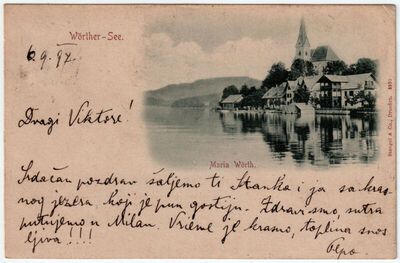 Wörther-See.
6. 9. 97.
Dragi Viktore!
Maria Wörth.
Stengel & Co., Dresden.
Srdačan pozdrav šaljemo ti Stanka i ja sa kras
nog jezera koji je pun gostiju. Zdravi smo, sutra
putujemo u Milan. Vrieme je krasno, toplina snos
ljiva!!!
Pepo